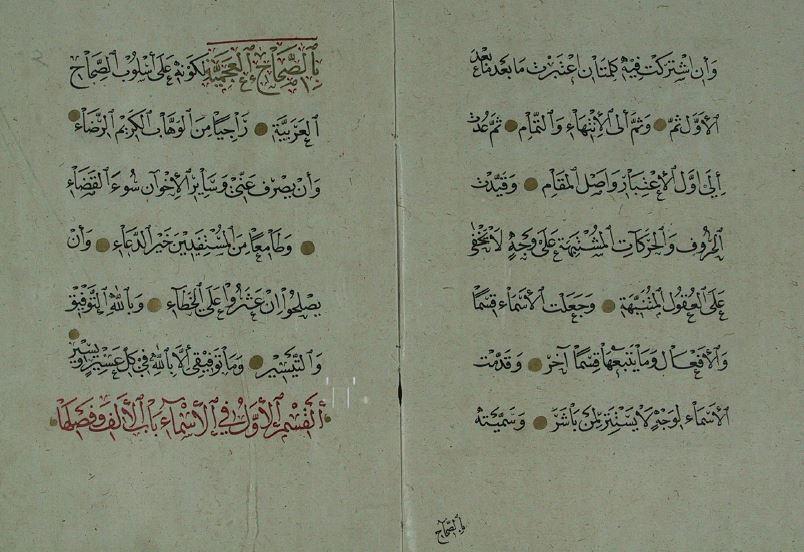 وَأِن اشْتَرَكَتْ فِيْهِ كَلِمَتَان اعْتَبَرْت مَا بَعْدَ مَا بَعْدَ
الْاَوَّل ثُمَّ وَثُمَّ أِلَى الْأِنْتِهَاءِ وَالتَّمَامِ ثُمَّ عُدْت
أِلَى اَوَّلِ الْاِعْتِبَارِ وَاَصْلِ الْمَقَامِ وَقَيَّدْت
الْحُرُوفَ وَالْحَرَكَاتِ الْمُشْتَبِهَةَ عَلَى وَجْهٍ لَا يَخْفَى
عَلَى الْعُقُولِ الْمُتَنَبِّهَةِ وَجَعَلْت الْأَسْمَاءَ قِسْمًا
وَالْاَفْعَالَ وَمَا يَتْبَعُهَا قِسْمًا آخَرَ وَقَدَّمْت
الْأَسْمَاءَ لِوَجْهٍ لَا يَسْتَتِرُ لِمَنْ بَاشَرَ وَسَمَّيْتُهُ
بِالصِّحَاحِ
بِالصِّحَاحِ الْعَجَمِيَّةِ لِكَوْنِهِ عَلَى أُسْلُوبِ الصِّحَاحِ
الْعَرَبِيَّةِ رَاجِيًا مِنَ الْوَهَّابِ الْكَرِيْمِ الرِّضَاءَ
وَأَنْ يَصْرِفَ عَنِّي وَسَائِرِ الْأِخْوَانِ سُوءَ الْقَضَاءِ
وَطَامِعًا مِنَ الْمُسْتَفِيْدِيْنَ خَيْرَ الدُّعَاءِ وَأَنْ
يُصْلِحُوا اِنْ عَثَرُوا عَلَى الْخَطَاءِ وَبِاللهِ التَّوْفِيْق
وَالتَّيْسِيْر وَمَا تَوْفِيْقِي أِلَّا بِاللهِ فِي كُلِّ عَسِيْرٍ وَيَسِيْرٍ
أَلْقِسْمُ الْأَوَّلُ فِي الْأَسْمَاءِ بَابُ الْأَلِفِ وَفَصْلُهَا